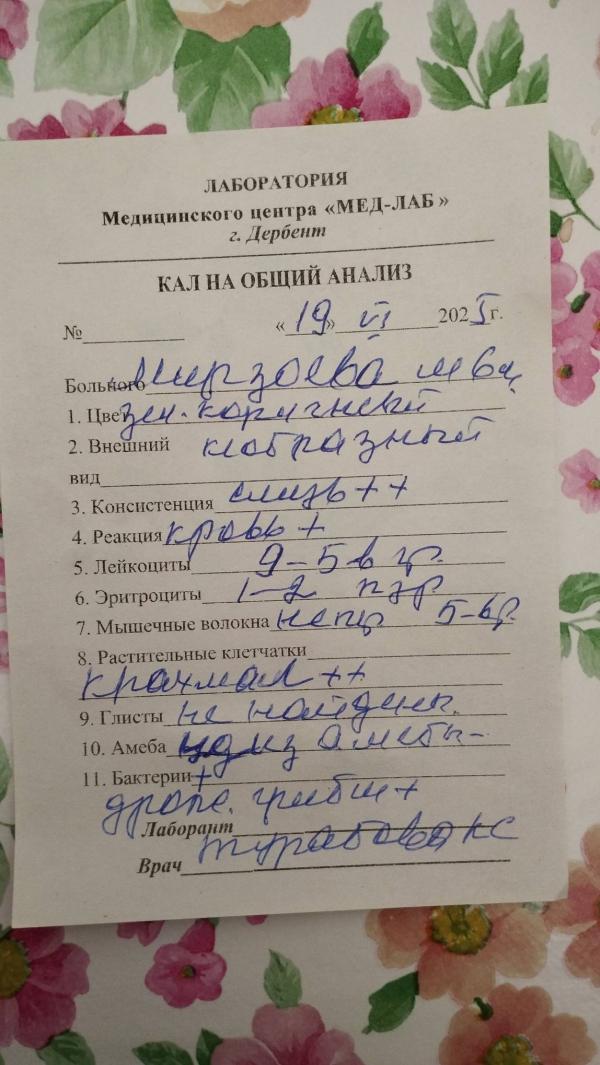 ЛАБОРАТОРИЯ
Медицинского центра «МЕД-ЛАБ»
г. Дербент
КАЛ НА ОБЩИЙ АНАЛИЗ
№ « 19 » VI 2025 г.
Больного Мирзоева
1. Цвет зел. коричневый
2. Внешний кобразный
вид
3. Консистенция слизь ++
4. Реакция кровь +
5. Лейкоциты
6. Эритроциты 1-2
7. Мышечные волокна непер 5-6
8. Растительные клетчатки
крахмал ++
9. Глисты не найдены.
10. Амеба амебы-
11. Бактерии +
дрож. грибы +
Лаборант
Врач